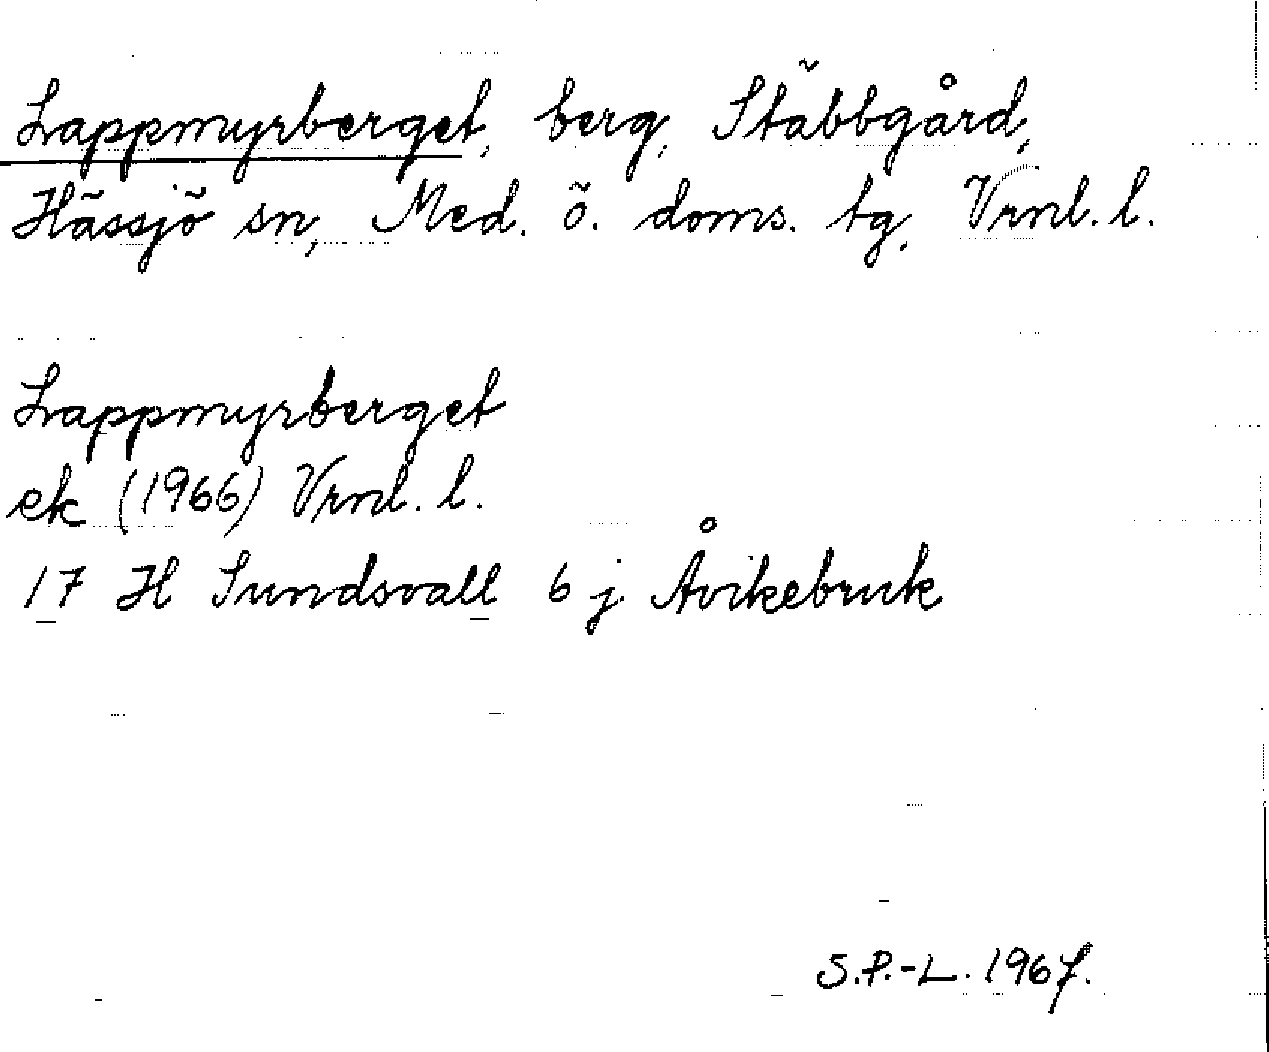 Lappmyrberget, berg, Stäbbgård,
Hässjö sn, Med. ö. doms. tg, Vrnl. l.
Lappmyrberget
ek (1966) Vrnl. l.
17 H Sundsvall 6 j Åvikebruk
S.P.-L. 1967.